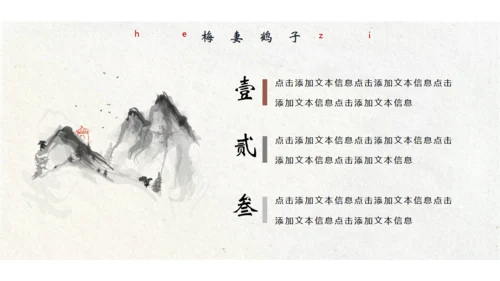 he 梅妻鹤子 zi
壹
点击添加文本信息点击添加文本信息点击
添加文本信息点击添加文本信息
贰
点击添加文本信息点击添加文本信息点击
添加文本信息点击添加文本信息
叁
点击添加文本信息点击添加文本信息点击
添加文本信息点击添加文本信息